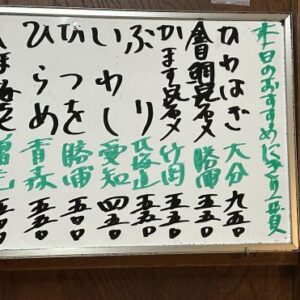 本日のおすすめにぎり一貫
かわはぎ 大分 九五〇
金目鯛昆布〆 勝浦 五五〇
かます昆布〆 竹岡 五五〇
ぶり 北海道 五五〇
いわし 愛知 四五〇
かつを 勝浦 五五〇
ひらめ 青森 五五〇